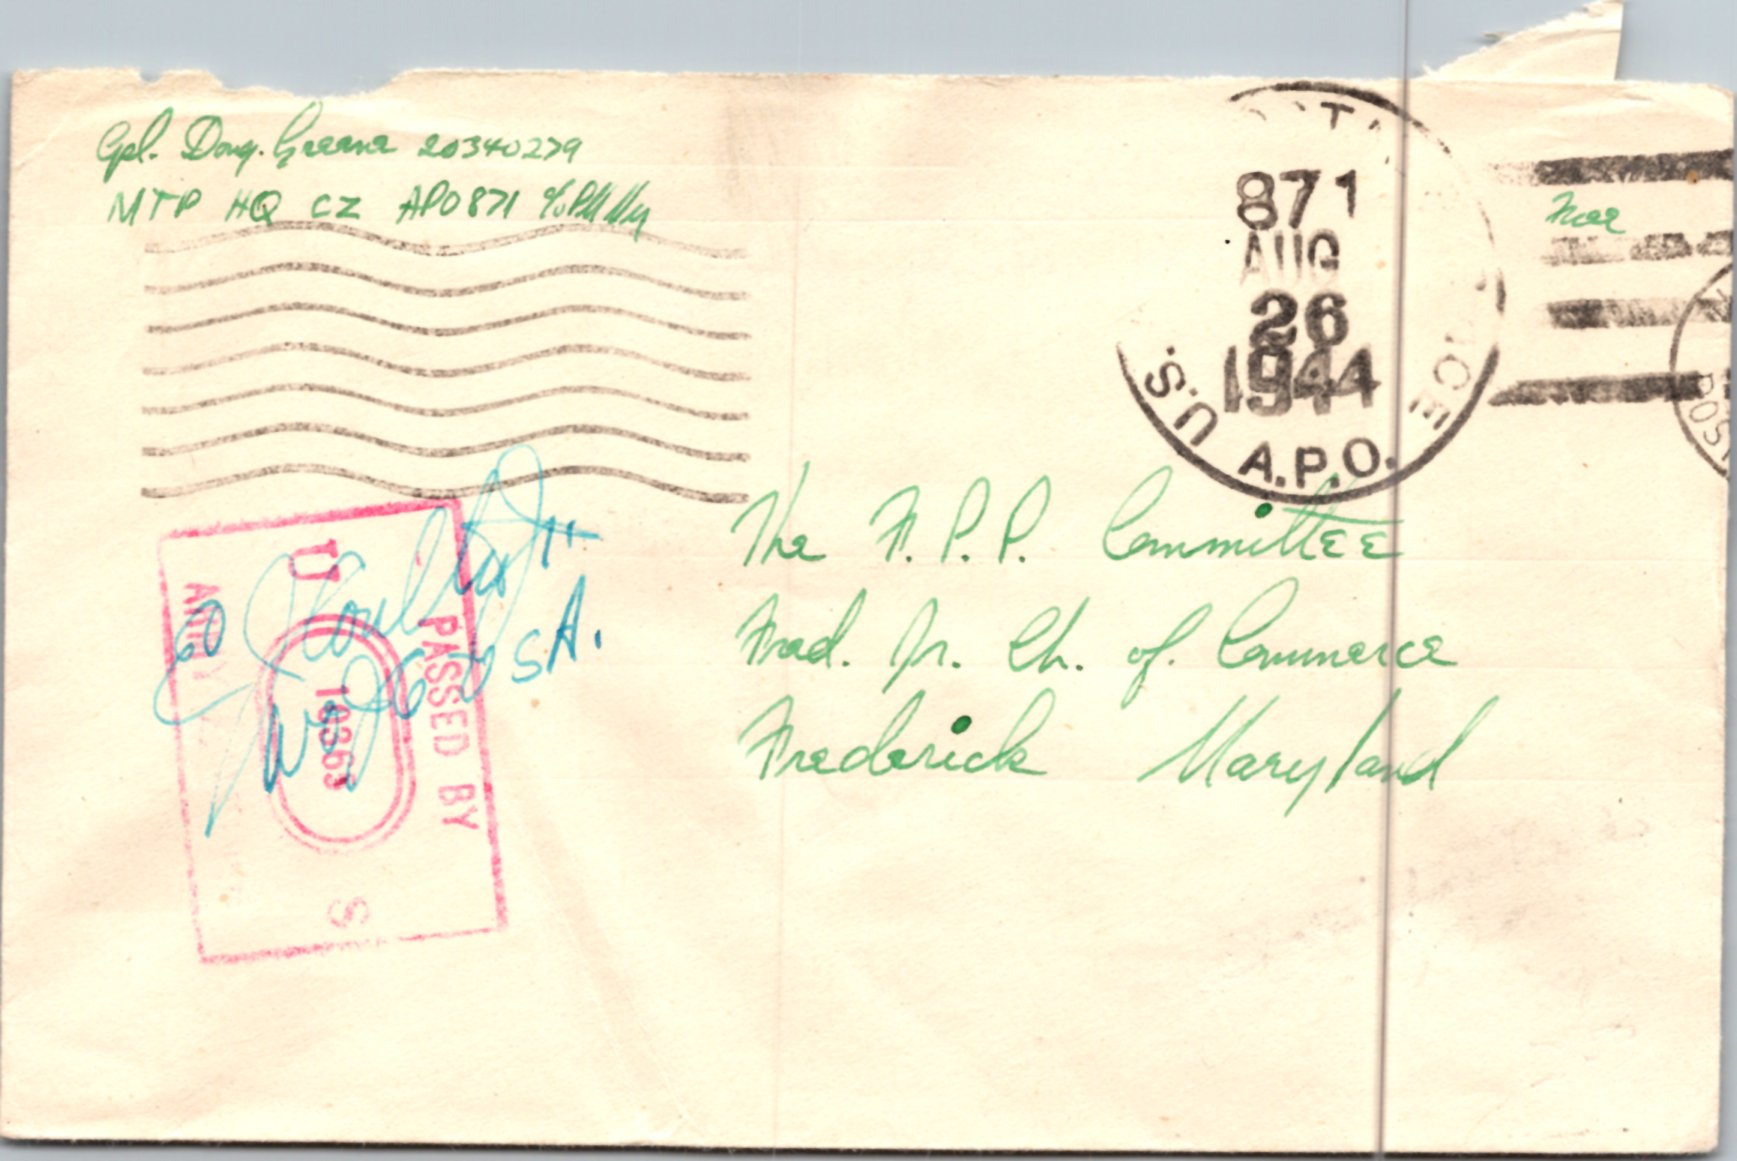 Cpl. Doug. Greene 20340279
MTP HQ CZ APO 871 c/o PM NY
Free
871
AUG
26
1944
U.S. A.P.O.
The F.P.P. Committee
Fred. Jr. Ch. of. Commerce
Frederick Maryland
PASSED BY
U S
ARMY
U.S.A.